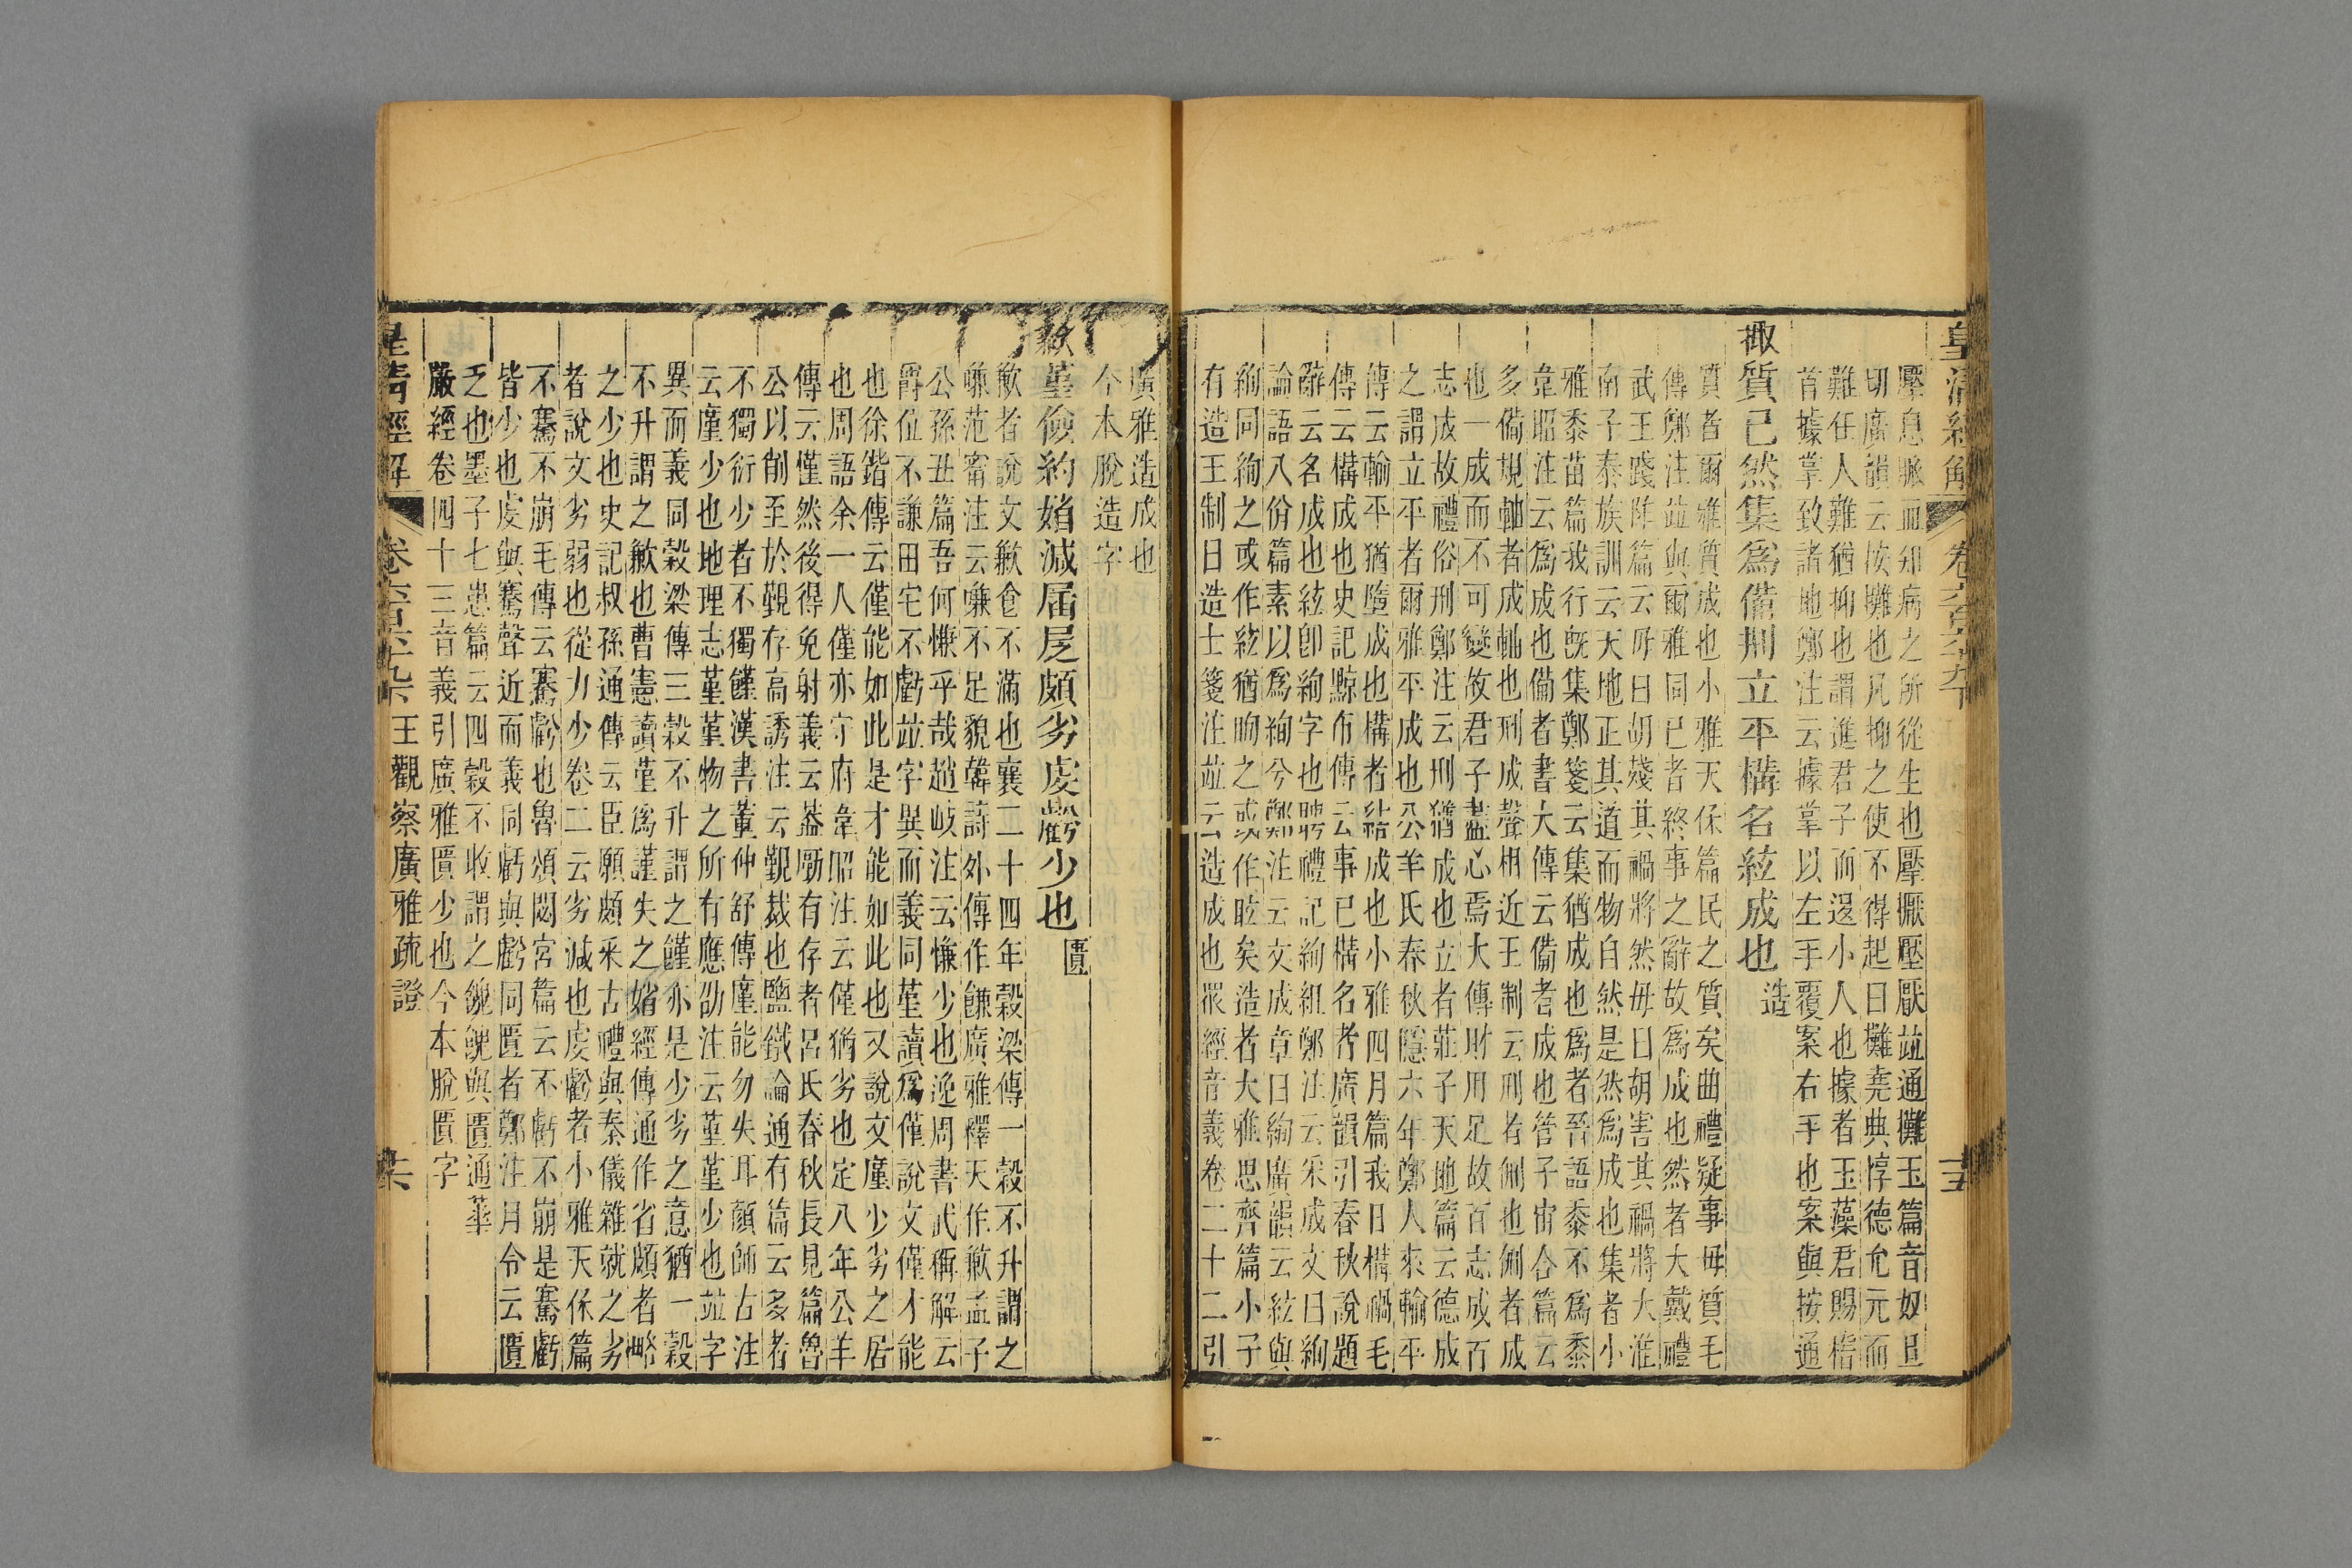 皇清經解
卷六百六十九下
十五
壓息脈而知病之所從生也壓擫壓厭竝通攤玉篇音奴旦
切廣韻云按攤也凡抑之使不得起曰攤堯典惇德允元而
難任人難猶抑也謂進君子而退小人也據者玉藻君賜稽
首據掌致諸地鄭注云據掌以左手覆案右手也案與按通
掫質已然集爲備刑立平構名絃成也造
質者爾雅質成也小雅天保篇民之質矣曲禮疑事毋質毛
傳鄭注竝與爾雅同已者終事之辭故爲成也然者大戴禮
武王踐阼篇云毋曰胡殘其禍將然毋曰胡害其禍將大淮
南子泰族訓云天地正其道而物自然是然爲成也集者小
雅黍苗篇我行既集鄭箋云集猶成也爲者晉語黍不爲黍
韋昭注云爲成也備者書大傳云備者成也管子宙合篇云
多備規軸者成軸也刑成聲相近王制云刑者侀也侀者成
也一成而不可變故君子盡心焉大傳財用足故百志成百
志成故禮俗刑鄭注云刑猶成也立者莊子天地篇云德成
之謂立平者爾雅平成也公羊氏春秋隱六年鄭人來輸平
傳云輸平猶墮成也構者結成也小雅四月篇我日構禍毛
傳云構成也史記黥布傳云事已構名者廣韻引春秋說題
辭云名成也絃卽絢字也聘禮記絢組鄭注云采成文曰絢
論語八佾篇素以爲絢兮鄭注云文成章曰絢廣韻云絃與
絢同絢之或作絃猶眴之或作眩矣造者大雅思齊篇小子
有造王制曰造士箋注竝云造成也眾經音義卷二十二引
廣雅造成也
今本脫造字
歉堇儉約媘減屆㞐頗劣虔虧少也匱
歉者說文歉食不滿也襄二十四年穀梁傳一穀不升謂之
嗛范甯注云嗛不足貌韓詩外傳作𩞃廣雅釋天作歉孟子
公孫丑篇吾何慊乎哉趙岐注云慊少也逸周書武稱解云
爵位不謙田宅不虧竝字異而義同堇讀爲僅說文僅才能
也徐鍇傳云僅能如此是才能如此也又說文廑少劣之居
也周語余一人僅亦守府韋昭注云僅猶劣也定八年公羊
傳云慬然後得免射義云蓋勱有存者呂氏春秋長見篇魯
公以削至於覲存高誘注云覲裁也鹽鐵論通有篇云多者
不獨衍少者不獨饉漢書董仲舒傳廑能勿失耳顏師古注
云廑少也地理志堇堇物之所有應劭注云堇堇少也竝字
異而義同穀梁傳三穀不升謂之饉亦是少劣之意猶一穀
不升謂之歉也曹憲讀堇爲謹失之媘經傳通作省頗者略
之少也史記叔孫通傳云臣願頗采古禮與秦儀雜就之劣
者說文劣弱也從力少卷二云劣減也虔虧者小雅天保篇
不騫不崩毛傳云騫虧也魯頌閟宮篇云不虧不崩是騫虧
皆少也虔與騫聲近而義同虧與虧同匱者鄭注月令云匱
乏也墨子七患篇云四穀不收謂之餽餽與匱通華
嚴經卷四十三音義引廣雅匱少也今本脫匱字
皇清經解
卷六百六十九下
王觀察廣雅疏證
十六